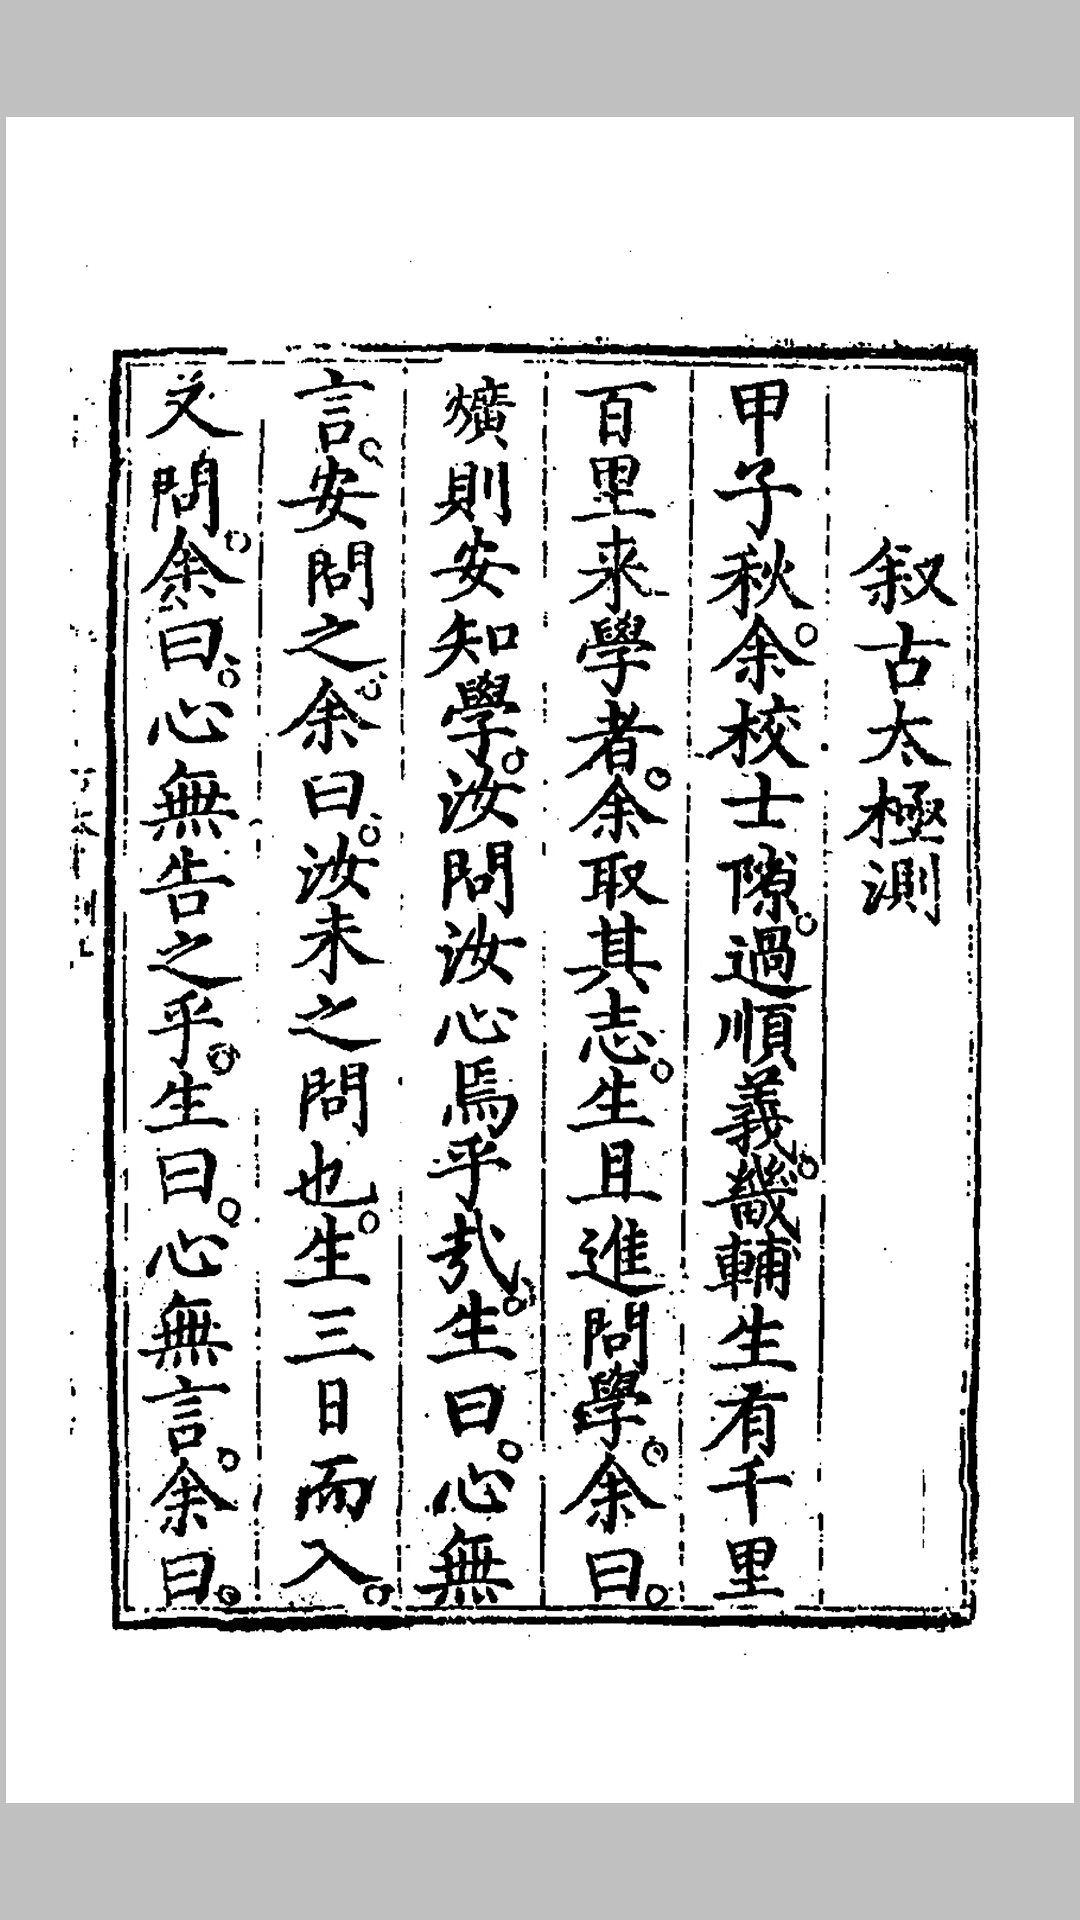 叙古太極測
甲子秋。余校士隙。過順義。畿輔生有千里
百里来學者。余取其志。生且進問學。余曰。
爌則安知學。汝問汝心焉乎哉。生曰。心無
言。安問之。余曰。汝未之問也。生三日而入。
又問。余曰。心無告之乎。生曰。心無言。余曰。